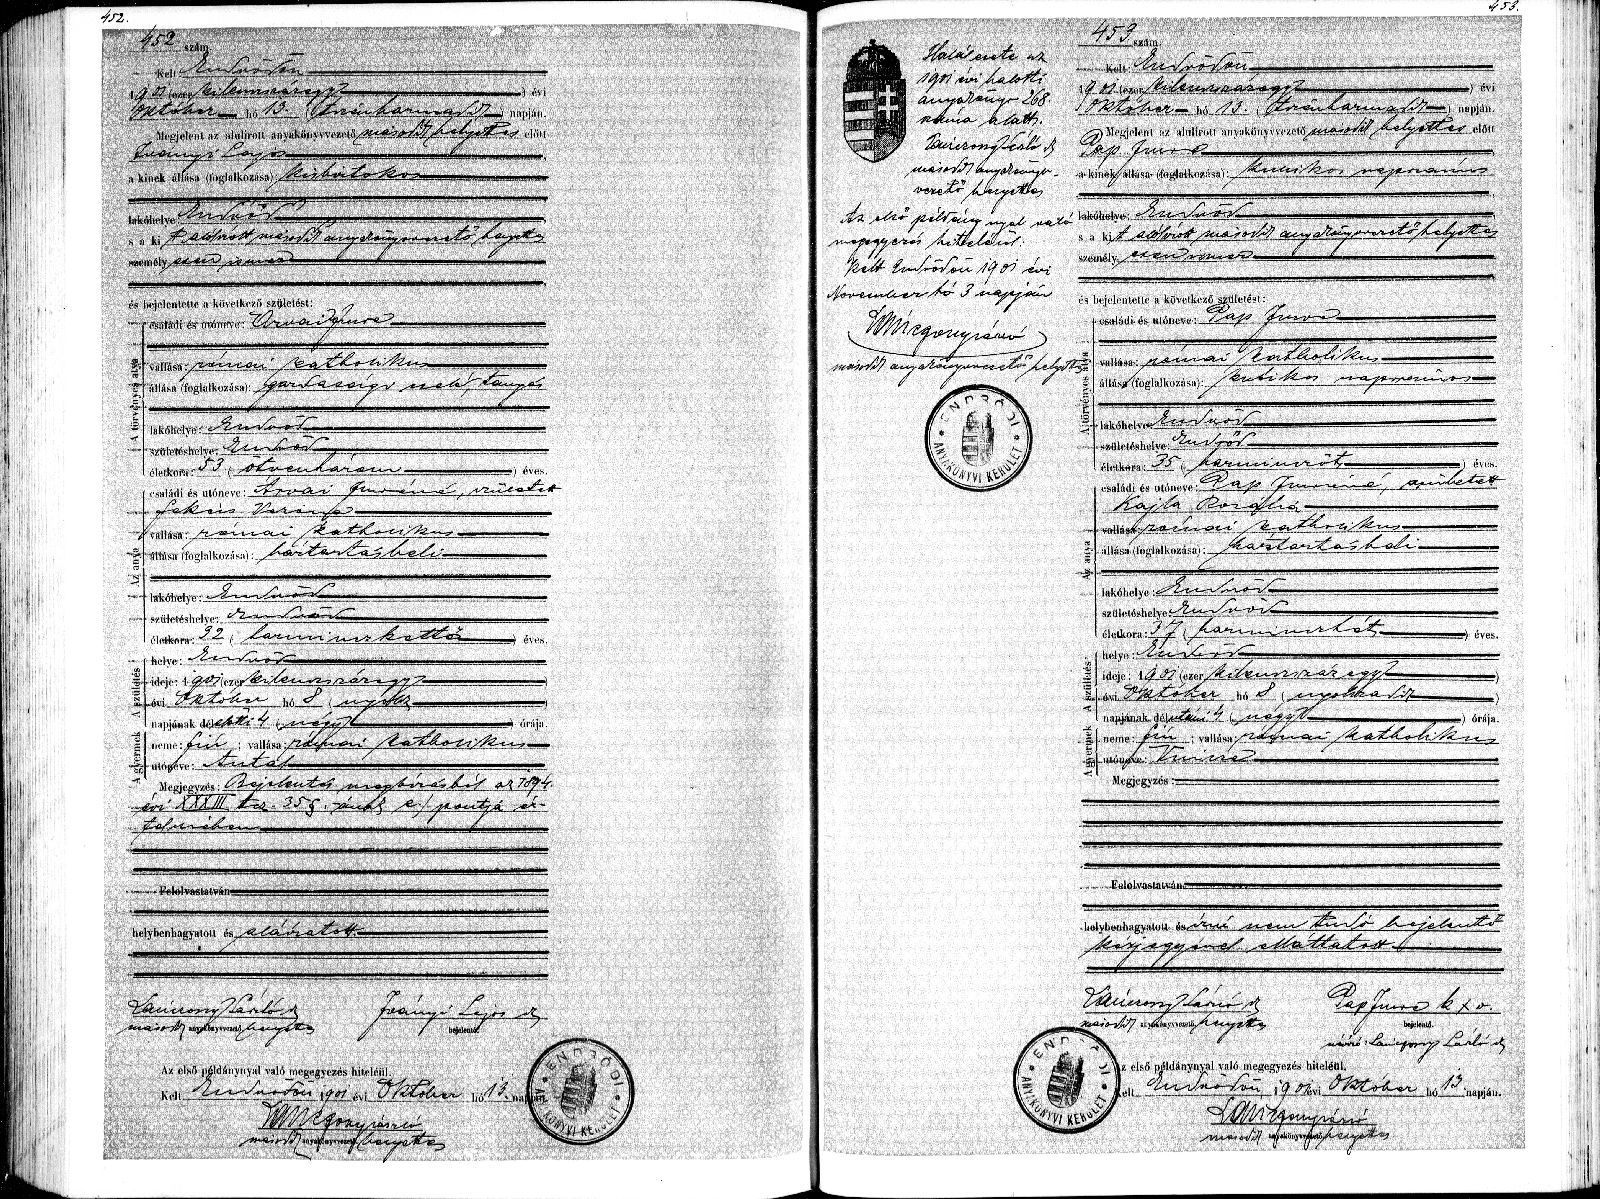 452.
452 szám.
Kelt Endrődön
1901 (ezer kilenczszázegy) évi
október hó 13. (tizenharmadik) napján.
Megjelent az alulirott anyakönyvvezető másodk helyettes előtt
Iványi Lajos
a kinek állása (foglalkozása): kisbirtokos
lakóhelye Endrőd
s a ki t alulirott másodk anyakönyvvezető helyettes
személyesen ismer
és bejelentette a következő születést:
A törvényes atya
családi és utóneve: Arvai Imre
vallása: római katholikus
állása (foglalkozása): gazdasági cseléd, tanyás
lakóhelye: Endrőd
születéshelye: Endrőd
életkora: 53 (ötvenhárom) éves.
Az anya
családi és utóneve: Arvai Imréné, született
Verona
vallása: római katholikus
állása (foglalkozása): háztartásbeli
lakóhelye: Endrőd
születéshelye: Endrőd
életkora: 32 (harminczkettő) éves.
A születés
helye: Endrőd
ideje: 1901 (ezer kilenczszázegy)
évi október hó 8 (nyolcz)
napjának délelőtti 4 (négy) órája.
A gyermek
neme: fiú; vallása: római katholikus
utóneve: Antal
Megjegyzés: Bejelentés megbizásból az 1894.
évi XXXIII t.cz. 35 §-ának c./ pontja ér-
telmében
Felolvastatván
helybenhagyatott és aláiratott.
Lánczony László sk
másodk anyakönyvvezető helyettes
Iványi Lajos sk
bejelentő.
Az első példánynyal való megegyezés hiteléül.
Kelt Endrődön 1901 évi Október hó 13. napján.
másodk anyakönyvvezető helyettes
ENDRŐDI
ANYAKÖNYVI KERÜLET
453.
Halálesete az
1901 évi halotti
anyakönyv 268.
száma alatt.
Lánczony László sk
másodk anyakönyv-
vezető helyettes
Az első példánynyal való
megegyezés hiteléül.
Kelt Endrődön 1901 évi
November hó 3 napján
másodk anyakönyvvezető helyettes
ENDRŐDI
ANYAKÖNYVI KERÜLET
453 szám.
Kelt Endrődön
1901 (ezer kilenczszázegy) évi
Október hó 13. (tizenharmadik) napján.
Megjelent az alulirott anyakönyvvezető másodk helyettes előtt
Pap Imre
a kinek állása (foglalkozása): kubikos napszámos
lakóhelye: Endrőd
s a ki t alulirott másodk anyakönyvvezető helyettes
személyesen ismer
és bejelentette a következő születést:
A törvényes atya
családi és utóneve: Pap Imre
vallása: római katholikus
állása (foglalkozása): kubikos napszámos
lakóhelye: Endrőd
születéshelye: Endrőd
életkora: 35 (harminczöt) éves.
Az anya
családi és utóneve: Pap Imréné, született
Kajla Rozália
vallása: római katholikus
állása (foglalkozása): háztartásbeli
lakóhelye: Endrőd
születéshelye: Endrőd
életkora: 37 (harminczhét) éves.
A születés
helye: Endrőd
ideje: 1901 (ezer kilenczszázegy)
évi Október hó 8 (nyolczadik)
napjának délutáni 4 (négy) órája.
A gyermek
neme: fiú; vallása: római katholikus
utóneve: Vincze
Megjegyzés:
Felolvastatván
helybenhagyatott és irni nem tudó bejelentő
kézjegyével elláttatott
Lánczony László sk
másodk anyakönyvvezető helyettes
Pap Imre k x v.
bejelentő.
névíró: Lánczony László sk
Az első példánynyal való megegyezés hiteléül.
Kelt Endrődön 1901 évi Október hó 13 napján.
másodk anyakönyvvezető helyettes
ENDRŐDI
ANYAKÖNYVI KERÜLET